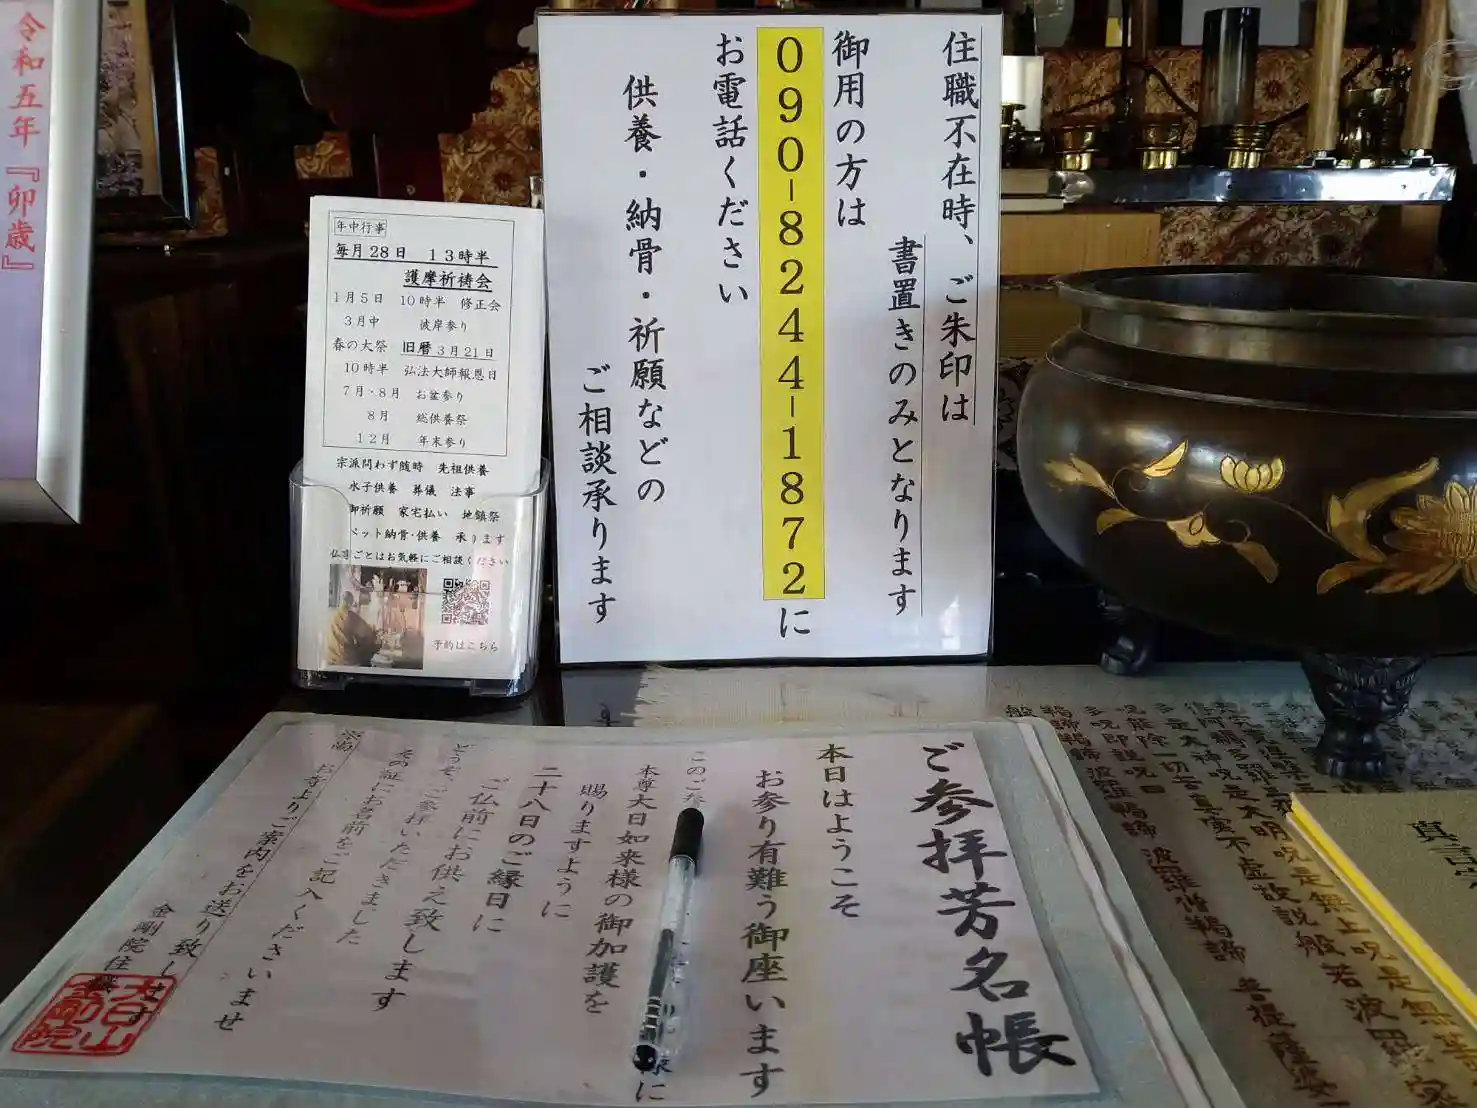 令和五年『卯歳』
住職不在時、ご朱印は
書置きのみとなります
御用の方は
090-8244-1872に
お電話ください
供養・納骨・祈願などの
ご相談承ります
年中行事
毎月28日 13時半
護摩祈祷会
1月5日 10時半 修正会
3月中 彼岸参り
春の大祭 旧暦3月21日
10時半 弘法大師報恩日
7月・8月 お盆参り
8月 総供養祭
12月 年末参り
宗派問わず随時 先祖供養
水子供養 葬儀 法事
御祈願 家宅払い 地鎮祭
ペット納骨・供養 承ります
仏事ごとはお気軽にご相談ください
予約はこちら
ご参拝芳名帳
本日はようこそ
お参り有難う御座います
このご参
縁に
本尊大日如来様の御加護を
賜りますように
二十八日のご縁日に
ご仏前にお供え致します
どうぞ、ご参拝いただきました
その証にお名前をご記入くださいませ
尚
お寺よりご案内をお送り致します
金剛院住職
大日山
金剛院
真言